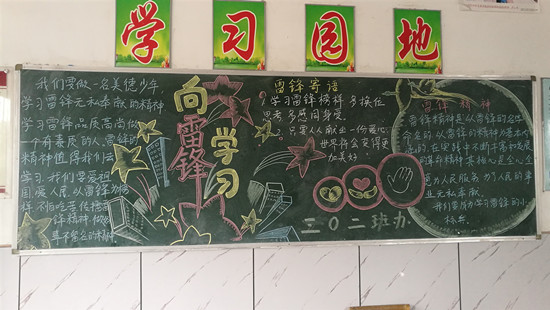 学习园地
我们要做一名美德少年
学习雷锋无私奉献的精神
学习雷锋品质高尚做
一个有素质的人,雷锋的
精神值得我们去
学习.我们要爱祖
国爱人民,从雷锋
向雷锋
学习
雷锋寄语
学习雷锋榜样 多换位
思考 多感同身受.
只要人人献出一份爱心.
世界将会变得更
加美好
二〇二班办
雷锋精神
雷锋精神是以雷锋的名字
命名的.以雷锋的精神为基本内
涵的.在实践中不断丰富和发展
的革命精神其核心是全心全
意为人民服务.为人民的事
业无私奉献.
我们要努力学习雷锋的小
标兵.